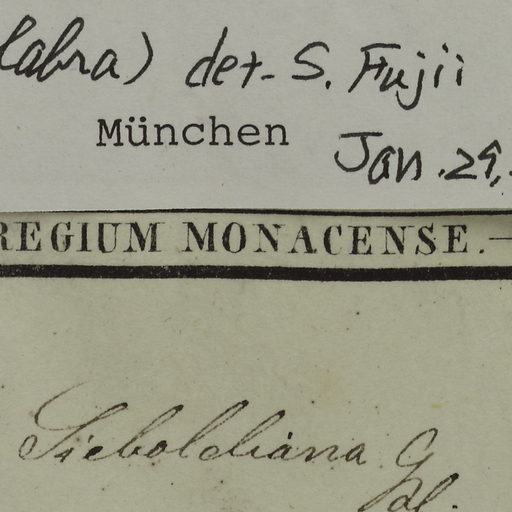 labra) det. S. Fujii
München Jan. 29,
REGIUM MONACENSE.—
Sieboldiana G